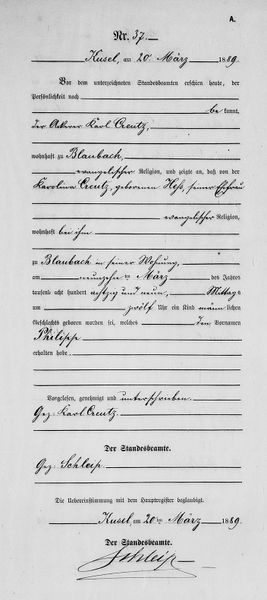 A.
Nr. 37.
Kusel, am 20 ten März 1889.
Vor dem unterzeichneten Standesbeamten erschien heute, der
Persönlichkeit nach
be kannt,
der Ackerer Karl Creutz,
wohnhaft zu Blaubach,
evangelischer Religion, und zeigte an, daß von der
Karolina Creutz, geborenen Heß, seiner Ehefrau
evangelischer Religion,
wohnhaft bei ihm
zu Blaubach in seiner Wohnung,
am neunzehnten März des Jahres
tausend acht hundert achtzig und neun, Mittags
um zwölf Uhr ein Kind männlichen
Geschlechts geboren worden sei, welches den Vornamen
Philipp
erhalten habe.
Vorgelesen, genehmigt und unterschrieben.
Gez: Karl Creutz.
Der Standesbeamte.
Gez: Schleip.
Die Uebereinstimmung mit dem Hauptregister beglaubigt.
Kusel, am 20ten März 1889.
Der Standesbeamte.
Schleip